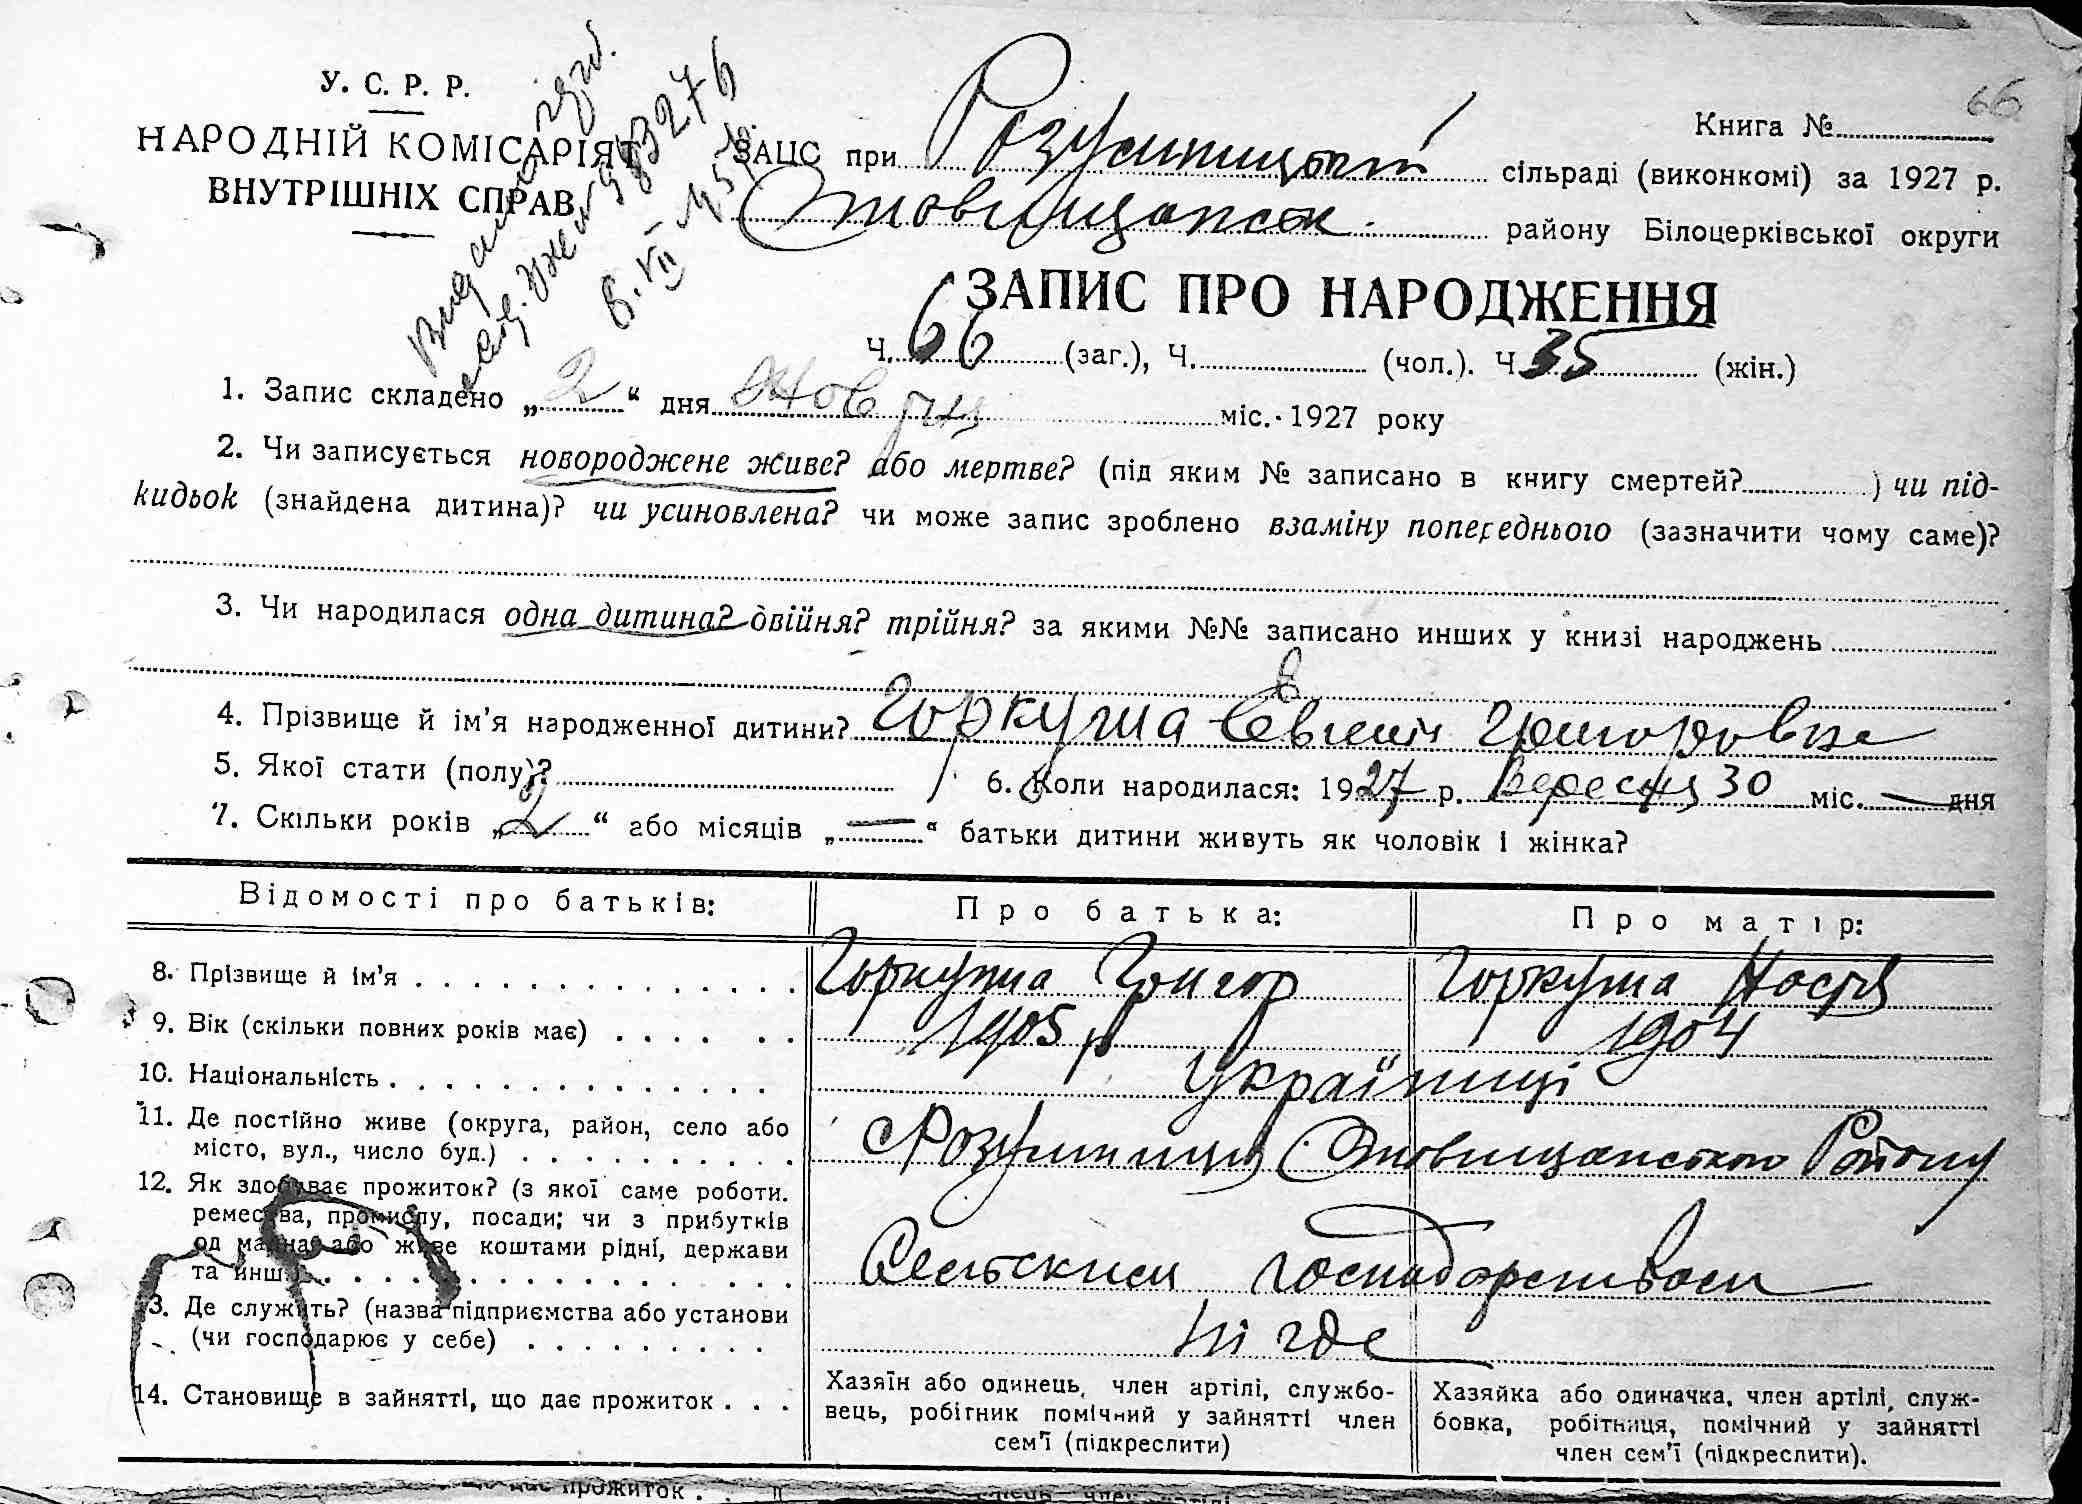 66
У. С. Р. Р.
НАРОДНІЙ КОМІСАРІЯТ
ВНУТРІШНІХ СПРАВ
ЗАЦС при Розумницькій сільраді (виконкомі) за 1927 р.
Книга №
Ставищанськ. району Білоцерківської округи
Видано
983276
ЗАПИС ПРО НАРОДЖЕННЯ
Ч. 66 (заг.), Ч. (чол.). Ч 35 (жін.)
1. Запис складено „ 2 “ дня Жовтня міс. 1927 року
2. Чи записується новороджене живе? або мертве? (під яким № записано в книгу смертей? ) чи під-
кидьок (знайдена дитина)? чи усиновлена? чи може запис зроблено взаміну попереднього (зазначити чому саме)?
3. Чи народилася одна дитина? двійня? трійня? за якими №№ записано инших у книзі народжень
4. Прізвище й ім’я народженної дитини? Горкуша Євгенія Григоровна
5. Якої стати (полу)? 6. Коли народилася: 1927 р. Вересня 30 міс. — дня
7. Скільки років „ 2 “ або місяців „ — “ батьки дитини живуть як чоловік і жінка?
Відомості про батьків: Про батька: Про матір:
8. Прізвище й ім’я Горкуша Григор Горкуша Настя
9. Вік (скільки повних років має) 1905 р 1904
10. Національність Українці
11. Де постійно живе (округа, район, село або
місто, вул., число буд.) с Розумниця Ставищанського Району
12. Як здобуває прожиток? (з якої саме роботи.
ремества, промислу, посади; чи з прибутків
од майна або живе коштами рідні, держави
та инш.) Сельским господарством
13. Де служить? (назва підприємства або установи
(чи господарює у себе) ні где
14. Становище в зайнятті, що дає прожиток
Хазяїн або одинець, член артілі, службо-
вець, робітник помічний у зайнятті член
сем’ї (підкреслити)
Хазяйка або одиначка, член артілі, служ-
бовка, робітниця, помічний у зайнятті
член сем’ї (підкреслити).
прожиток